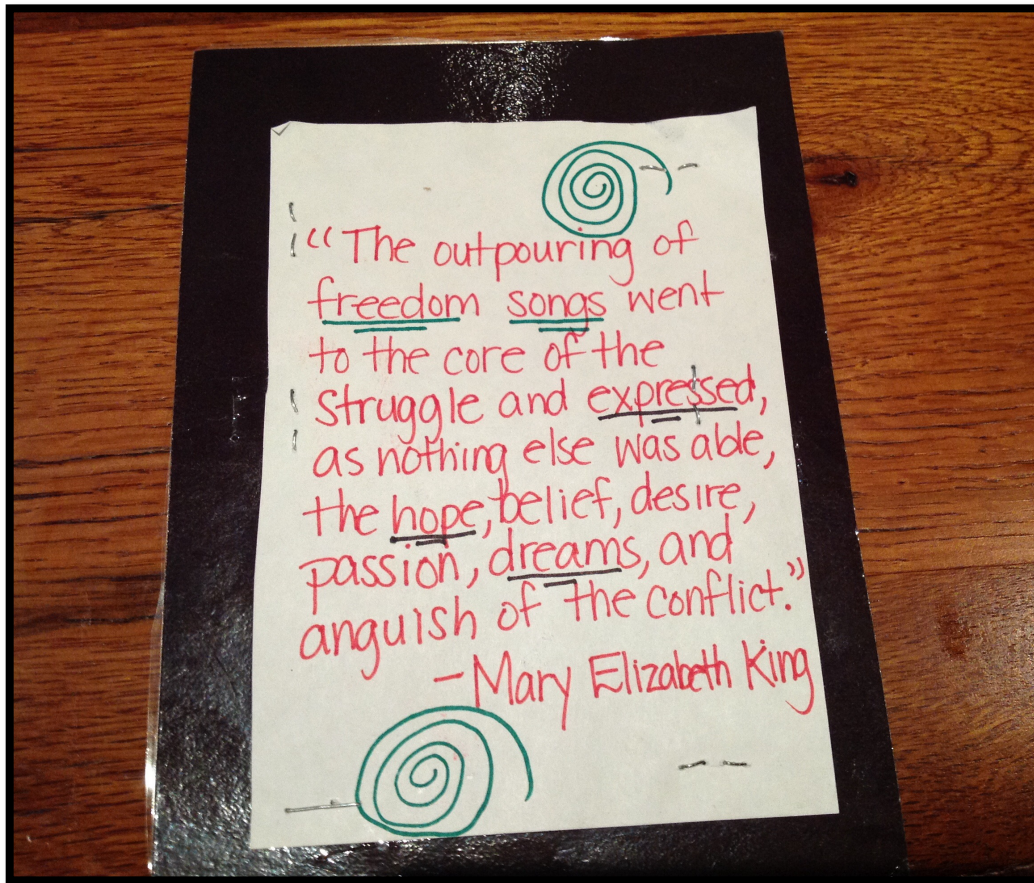 “The outpouring of
freedom songs went
to the core of the
struggle and expressed,
as nothing else was able,
the hope, belief, desire,
passion, dreams, and
anguish of the conflict.”
-Mary Elizabeth King